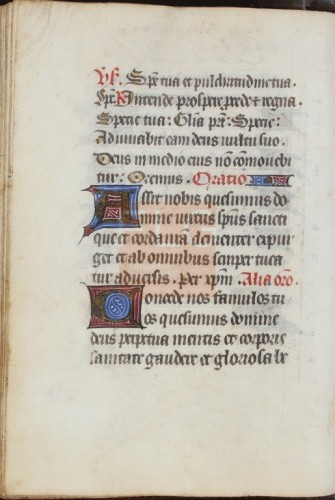 V̸. Specie tua et pulchritudine tua.
Sp̄e. Intende prospere procede et regna.
Specie tua: Gl̄ia pr̄i: Specie:
Adiuvabit eam deus vultu suo.
Deus in medio eius nō cōmovebi
tur: Oremus. Oratio
Assit nobis quesumus do
mine virtus spūs sancti
que et corda n̄ra clementer expur
get et ab omnibus semper tuea
tur adversis. Per xp̄m. Alia orō.
Concede nos famulos tu
os quesumus domine
deus perpetua mentis et corporis
sanitate gaudere et gloriosa be